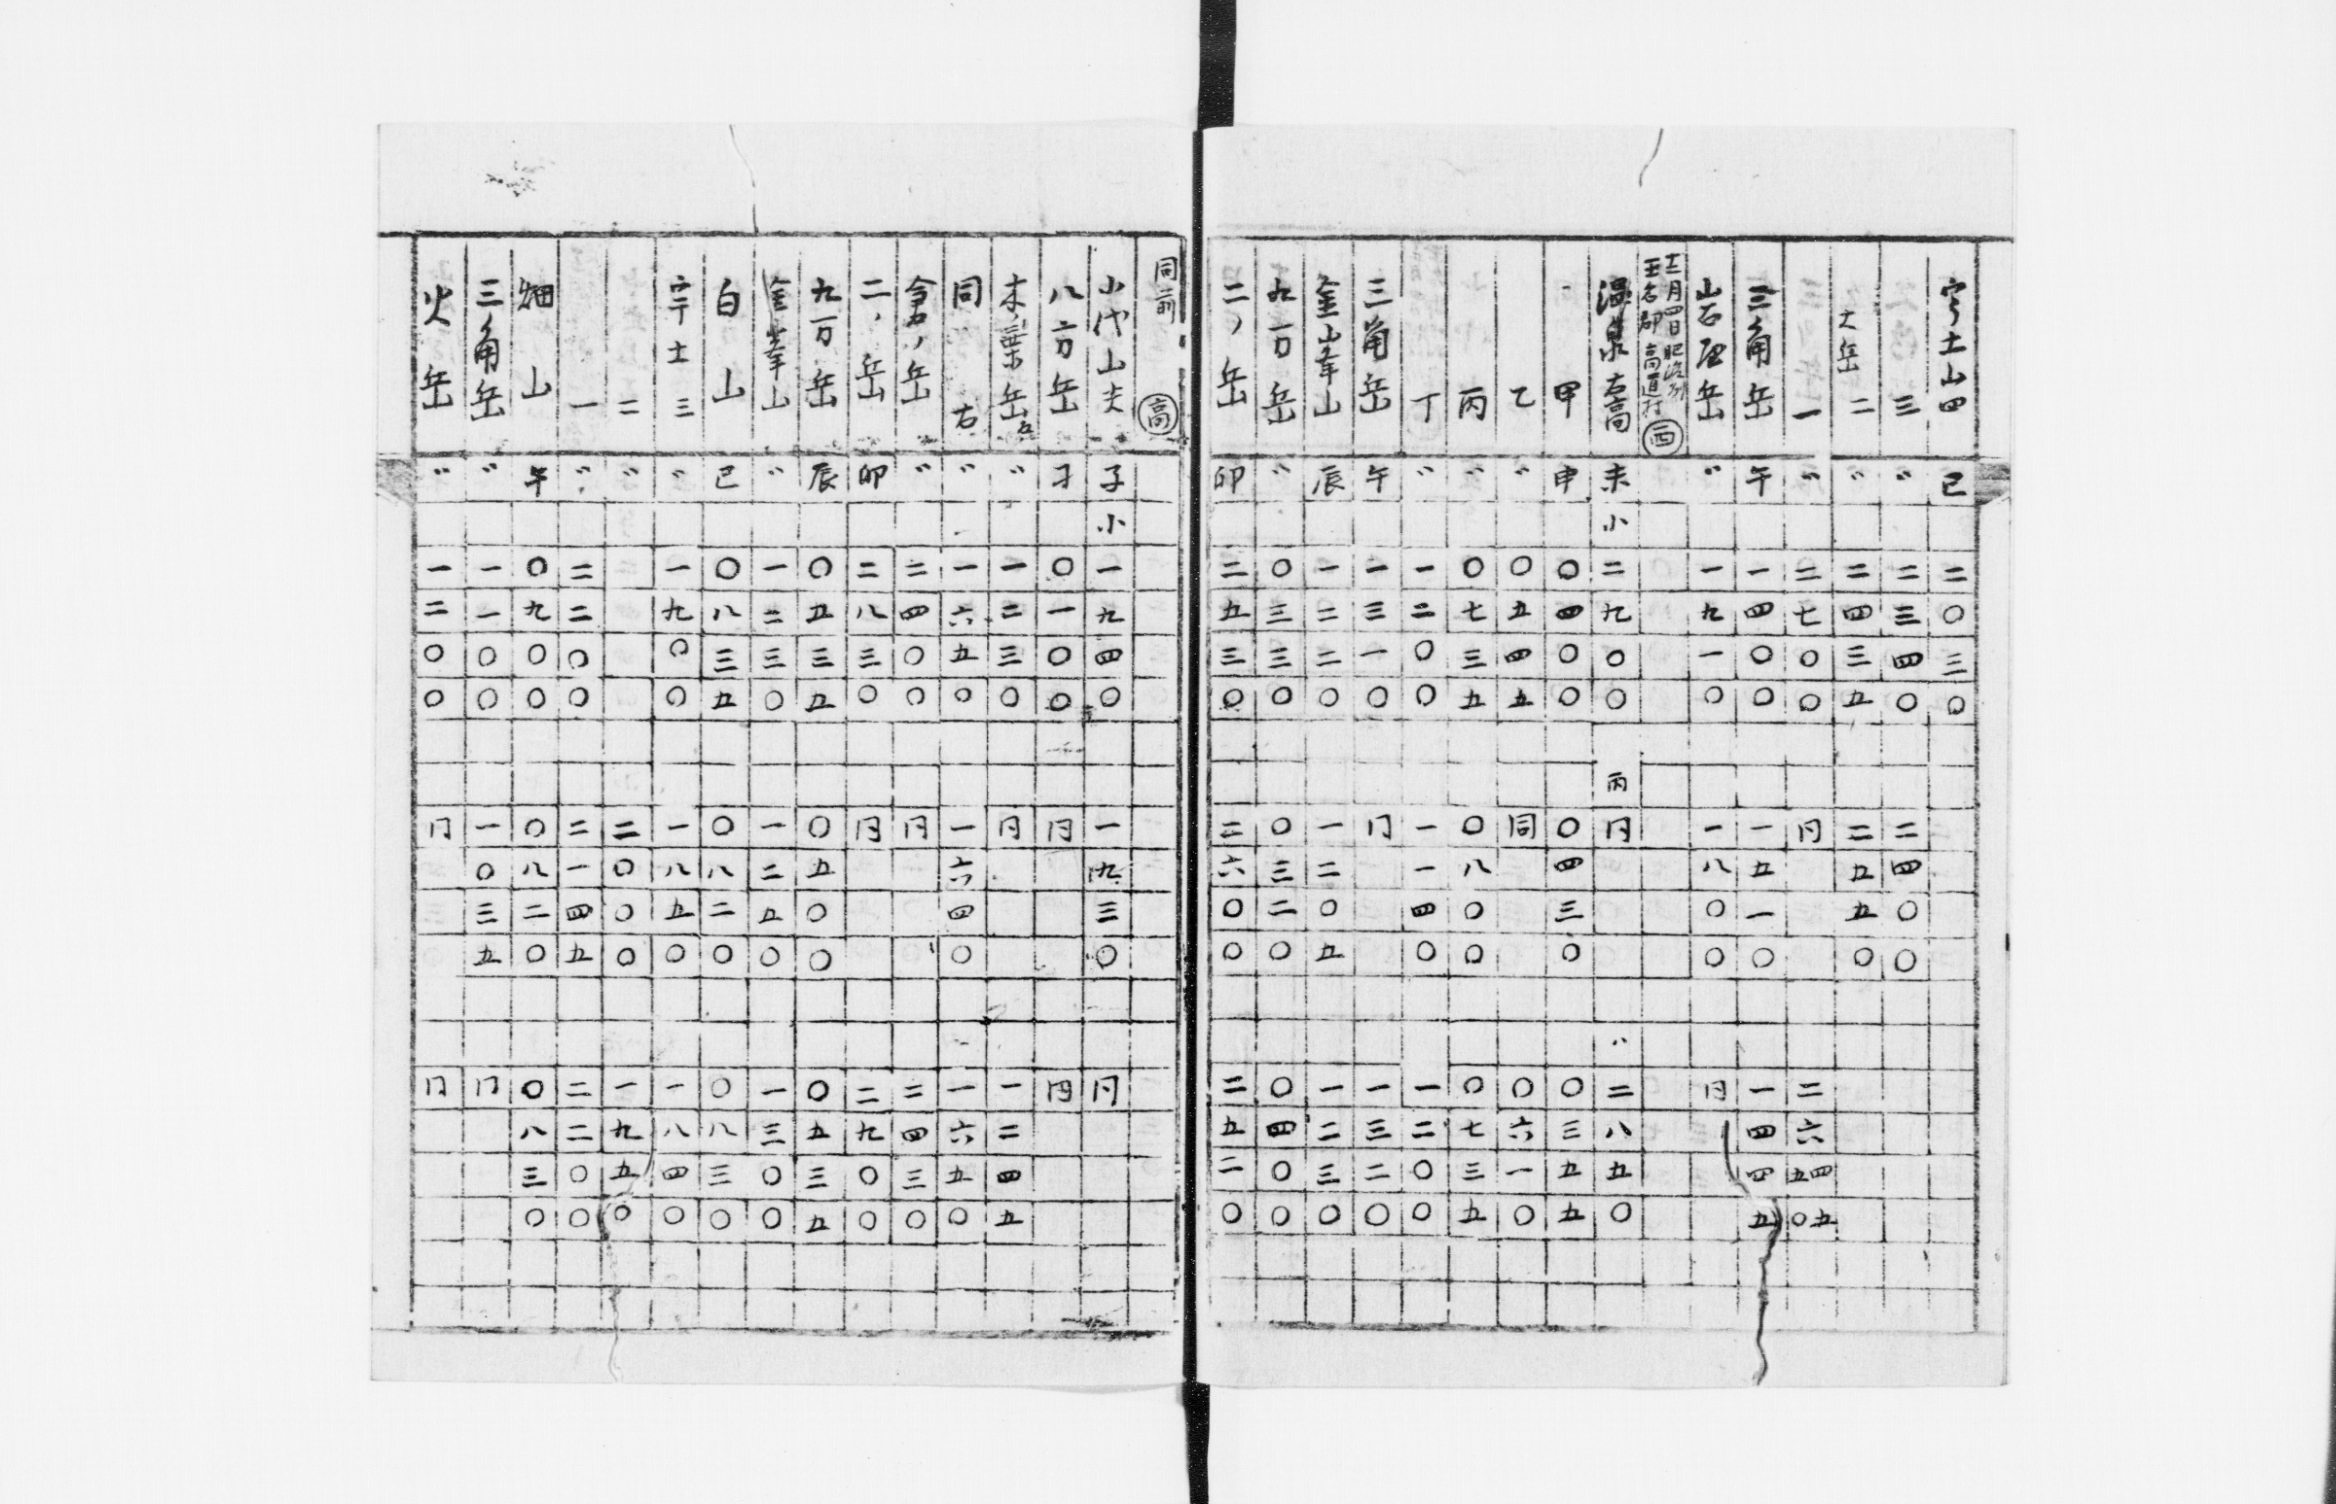 宇土山四 巳 二〇三〇
三 〃 二三四〇 二四〇〇
大岳二 〃 二四三五 二五五〇
一 〃 二七〇〇 同 二六四五 五〇
三角岳 午 一四〇〇 一五一〇 一四四五
岳 〃 一九一〇 一八〇〇 同
十二月四日肥後州
玉名郡高道村 西
温泉右高 未小 二九〇〇 丙 同 〃 二八五〇
甲 申 〇四〇〇 〇四三〇 〇三五五
乙 〃 〇五四五 同 〇六一〇
丙 〃 〇七三五 〇八〇〇 〇七三五
丁 〃 一二〇〇 一一四〇 一二〇〇
三角岳 午 一三一〇 同 一三二〇
金峯山 辰 一二二〇 一二〇五 一二三〇
九万岳 〃 〇三三〇 〇三二〇 〇四〇〇
二ノ岳 卯 二五三〇 二六〇〇 二五二〇
同前 高
小代山夫 子小 一九四〇 一九三〇 同
八方岳 〇一〇〇 同 同
木ノ葉岳右 〃 一二三〇 同 一二四五
同右 〃 一六五〇 一六四〇 一六五〇
倉ノ岳 〃 二四〇〇 同 二四三〇
二ノ岳 卯 二八三〇 同 二九〇〇
九万岳 辰 〇五三五 〇五〇〇 〇五三五
金峯山 〃 一二三〇 一二五〇 一三〇〇
白山 巳 〇八三五 〇八二〇 〇八三〇
宇土三 〃 一九〇〇 一八五〇 一八四〇
二 〃 二〇〇〇 一九五〇
一 〃 二二〇〇 二一四五 二二〇〇
畑山 午 〇九〇〇 〇八二〇 〇八三〇
三角岳 〃 一一〇〇 一〇三五 同
火岳 〃 一二〇〇 同 同